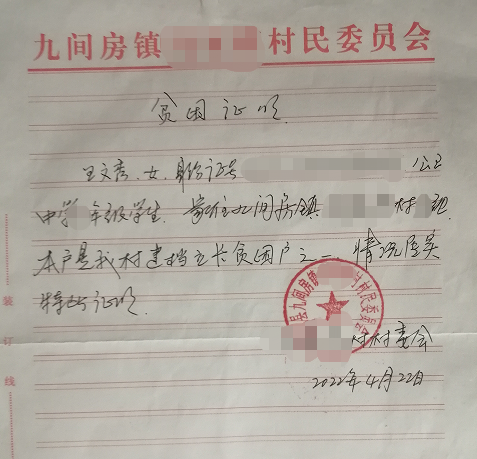 九间房镇 村民委员会
贫困证明
王文彦、女、身份证号 公王
中学 年级学生. 家住九间房镇 村 组.
本户是我村建档立卡贫困户之一, 情况属实
特此证明.
县九间房镇 村民委员会
村村委会
2022年4月22日
装订线